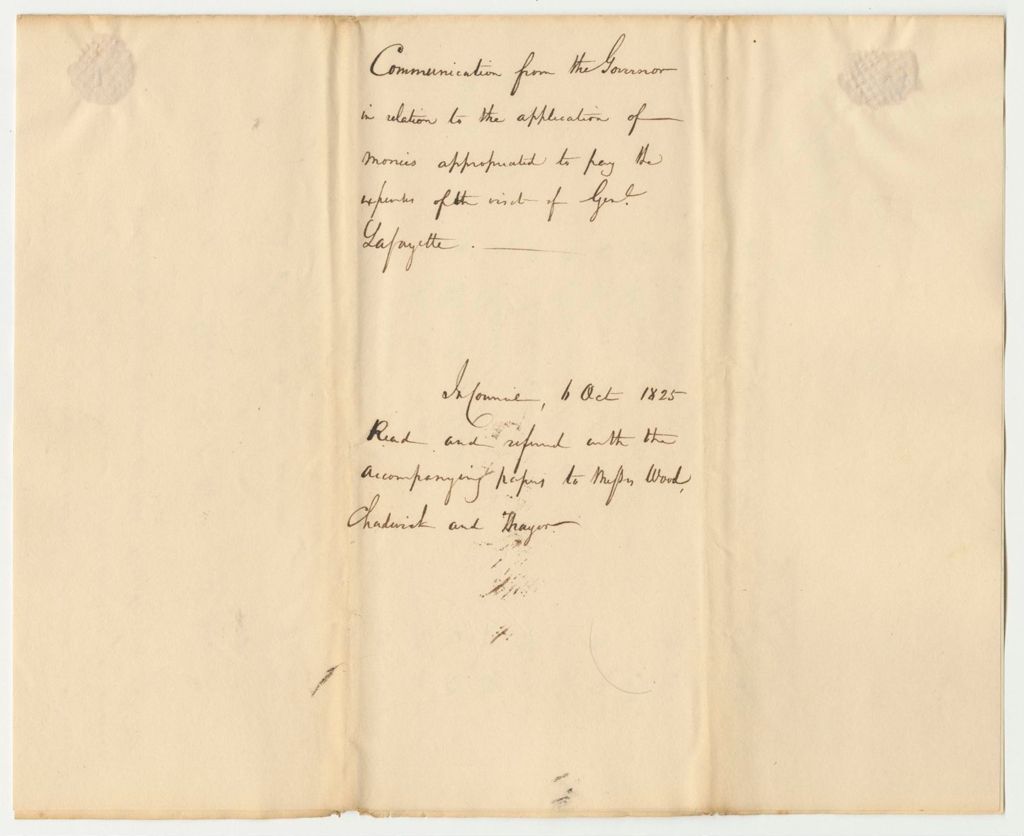 Communication from the Governor
in relation to the application of
monies appropriated to pay the
expenses of the visit of Genl.
Lafayette.
In Council, 6 Oct 1825
Read and referred with the
accompanying papers to Messrs Wood,
Chadwick and Thayer